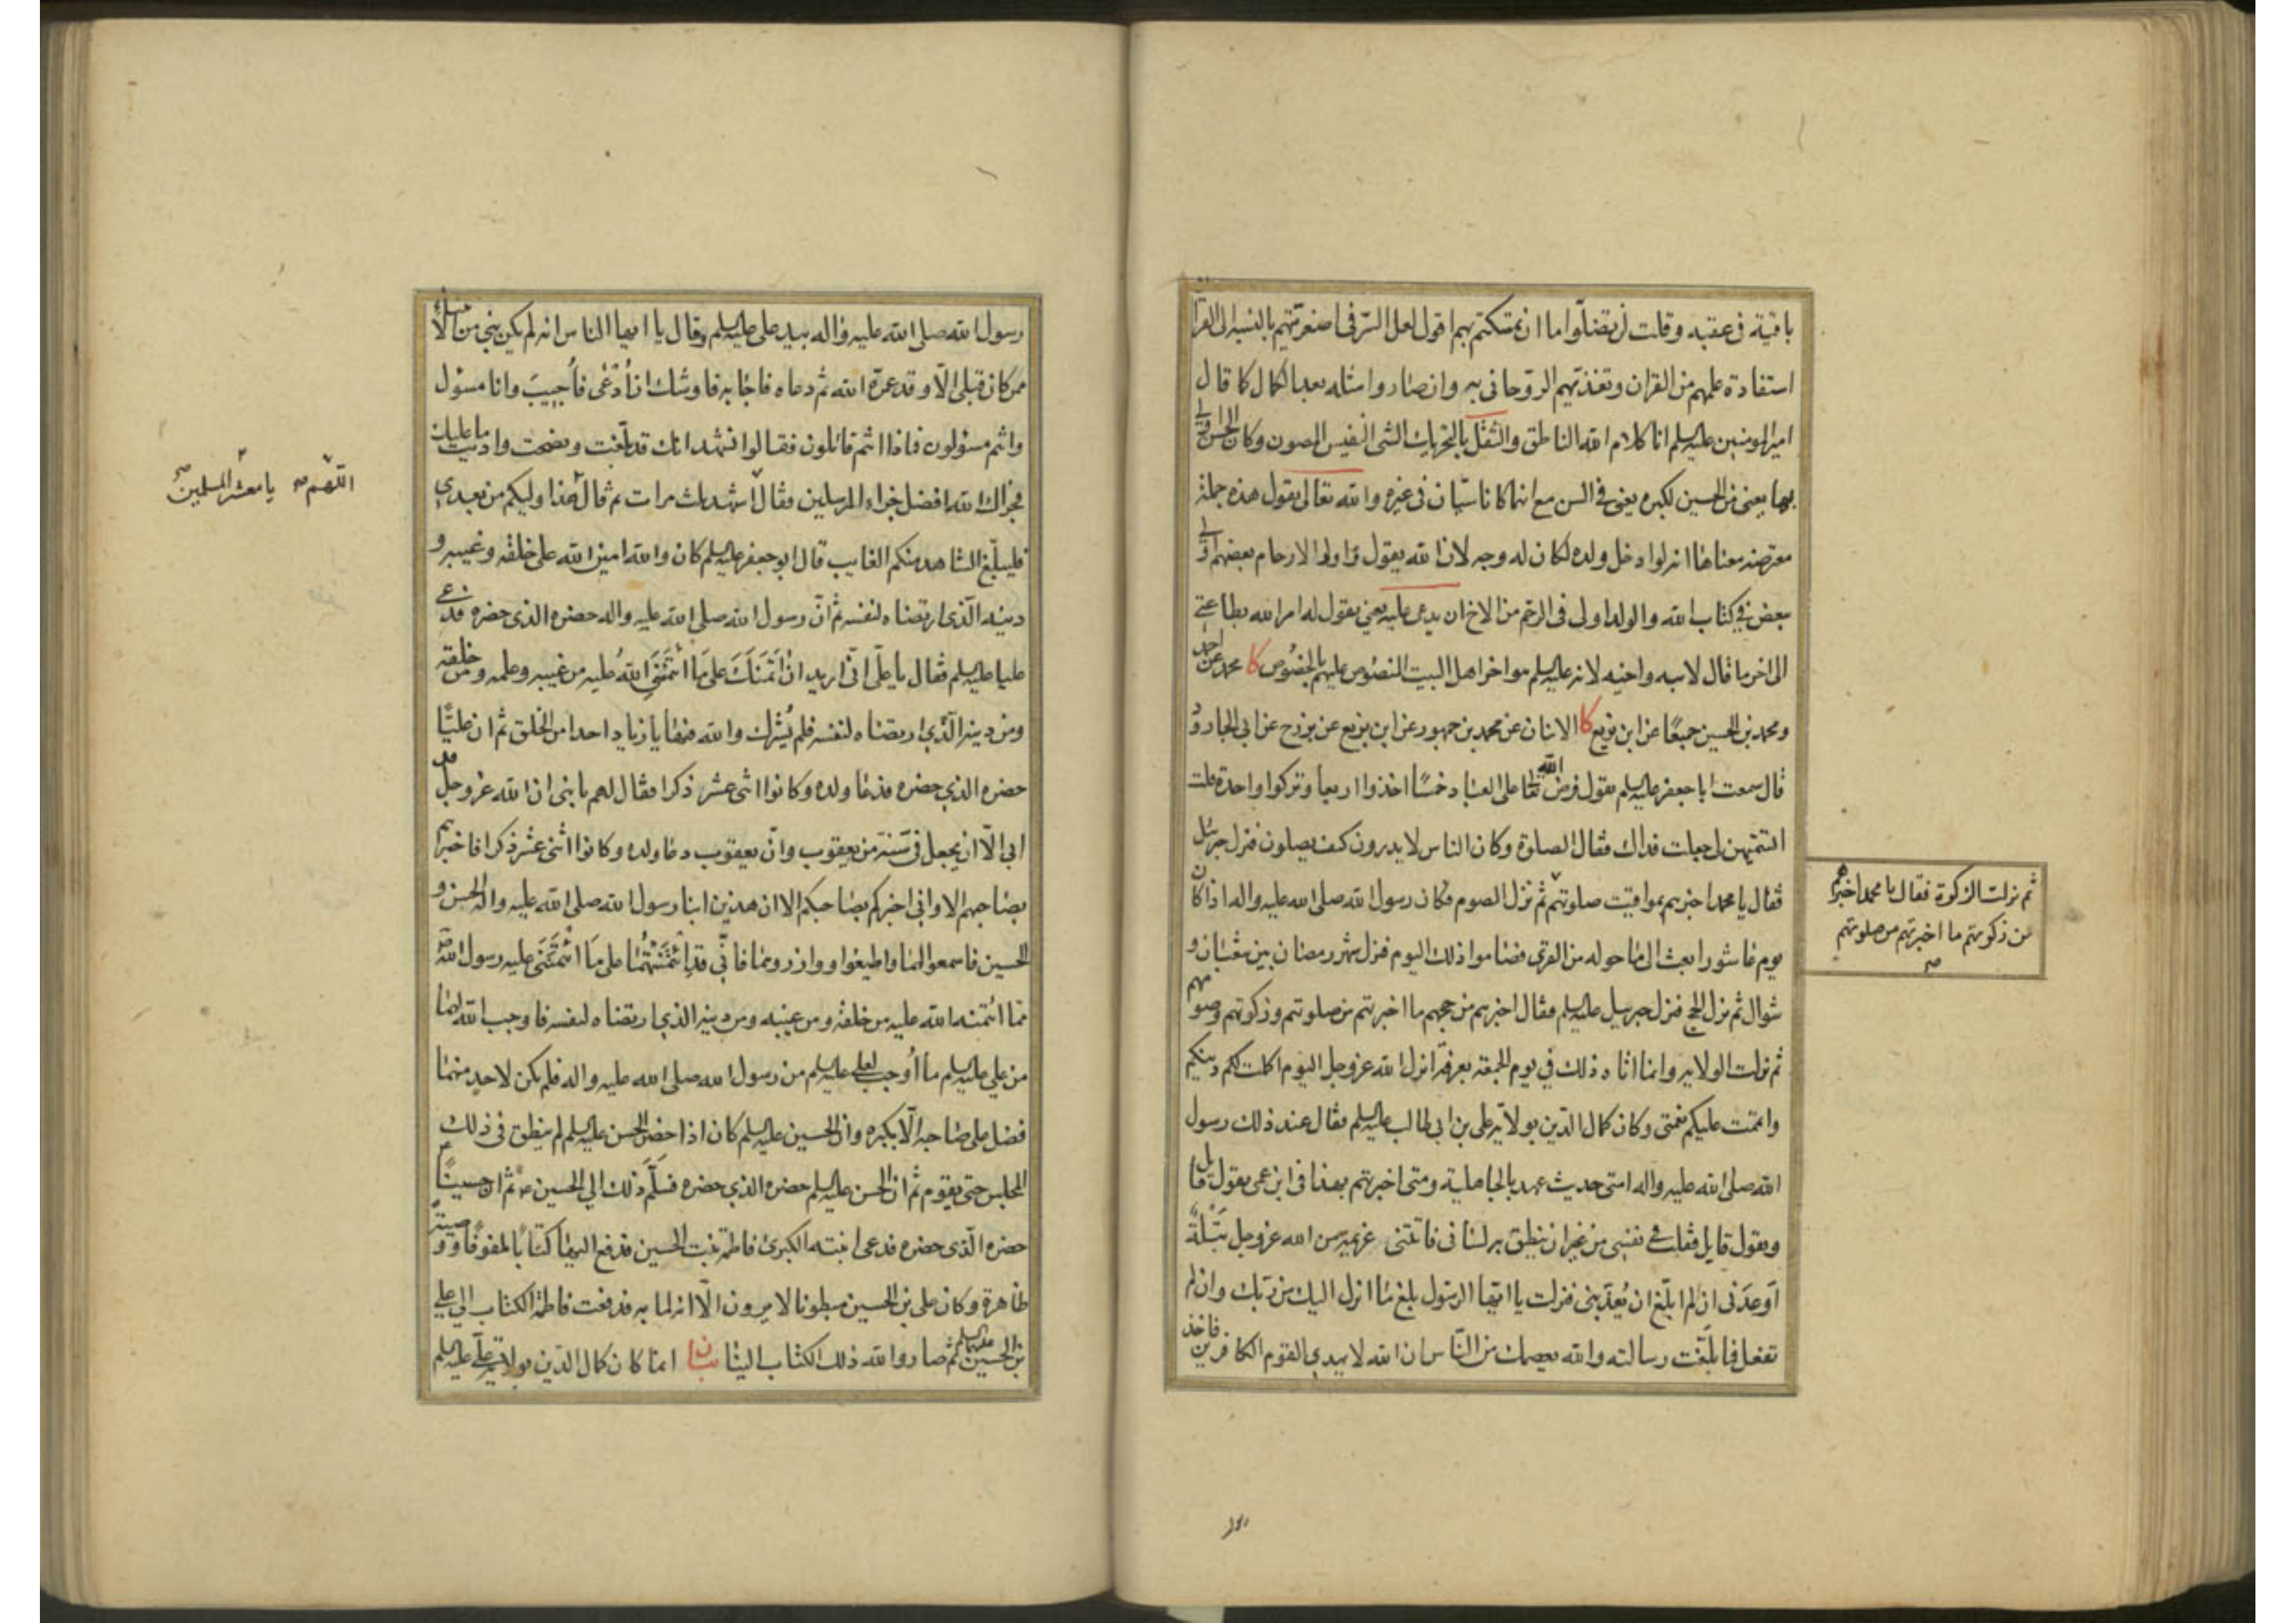 باقية في عقبه وقلت لن تضلوا ما ان تمسكتم بهم اقول لعل السر في اصغريتهم بالنسبة الى القرآن
استفادة علمهم من القران وتغذيتهم الروحاني به وان صاروا مثله بعد الكمال كما قال
امير المومنين عليه السلم انا كلام الله الناطق والثقل بالتحريك الشى النفيس المصون وكان الحسن اولى
بها يعنى من الحسين لكبره يعنى في السن مع انهما كانا سيان فى غيره والله تعالى يقول هذه جملة
معترضة معناها انه لو ادخل ولده لكان له وجه لان الله يقول واولوا الارحام بعضهم اولى
ببعض في كتاب الله والولد اولى فى الرحم من الاخ ان يدعى عليه يعنى يقول له امر الله بطاعتى
الى اخر ما قال لابيه واخيه لانه عليه السلم هو اخر اهل البيت المنصوص عليهم بالخصوص كا محمد عن احمد
ومحمد بن الحسين جميعا عن ابن بزيع كا الاثنان عن محمد بن جمهور عن ابن بزيع عن بزرج عن ابي الجارود
قال سمعت ابا جعفر عليه السلم يقول فرض الله تعالى على العباد خمسا اخذوا اربعا وتركوا واحدة قلت
اتسميهن لى جعلت فداك فقال الصلوة وكان الناس لا يدرون كيف يصلون فنزل جبرئيل
فقال يا محمد اخبرهم بمواقيت صلوتهم ثم نزل الصوم فكان رسول الله صلى الله عليه واله اذا كان
يوم عاشورا بعث الى ما حوله من القرى فصاموا ذلك اليوم فنزل شهر رمضان بين شعبان و
شوال ثم نزل الحج فنزل جبرئيل عليه السلم فقال اخبرهم من حجهم ما اخبرتهم من صلوتهم وزكوتهم وصومهم
ثم نزلت الولاية وانما اتاه ذلك في يوم الجمعة بعرفة انزل الله عز وجل اليوم اكملت لكم دينكم
واتممت عليكم نعمتى وكان كمال الدين بولاية على بن ابى طالب عليه السلم فقال عند ذلك رسول
الله صلى الله عليه واله امتى حديث عهد بالجاهلية ومتى اخبرتهم بهذا فى ابن عمى يقول قايل
ويقول قايل فقلت في نفسى من غير ان ينطق به لسانى فاتتنى عزيمة من الله عز وجل بتلة
اوعدنى ان لم ابلغ ان يعذبنى فنزلت يا ايها الرسول بلغ ما انزل اليك من ربك وان لم
تفعل فما بلغت رسالته والله يعصمك من الناس ان الله لا يهدي القوم الكافرين فاخذ
ثم نزلت الزكوة فقال يا محمد اخبرهم
من زكوتهم ما اخبرتهم من صلوتهم
صح
رسول الله صلى الله عليه واله بيد على عليه السلم وقال يا ايها الناس انه لم يكن نبي من الانبياء
ممن كان قبلى الا وقد عمره الله ثم دعاه فاجابه فاوشك ان ادعى فاجيب وانا مسؤل
وانتم مسئولون فماذا انتم قائلون فقالوا نشهد انك قد بلغت ونصحت واديت ما عليك
فجزاك الله افضل جزاء المرسلين فقال اشهد ثلث مرات ثم قال هذا وليكم من بعدي
فليبلغ الشاهد منكم الغايب قال ابو جعفر عليه السلم كان والله امين الله على خلقه وغيبه و
دينه الذي ارتضاه لنفسه ثم ان رسول الله صلى الله عليه واله حضره الذى حضره فدعى
عليا عليه السلم فقال يا على انى اريد ان ائتمنك على ما ائتمنني الله عليه من غيبه وعلمه ومن خلقه
ومن دينه الذي ارتضاه لنفسه فلم يشرك والله فيها يا زياد احدا من الخلق ثم ان عليا
حضره الذي حضره فدعا ولده وكانوا اثنى عشر ذكرا فقال لهم يا بنى ان الله عز وجل قد
ابى الا ان يجعل في سنة من يعقوب وان يعقوب دعا ولده وكانوا اثنى عشر ذكرا فاخبرهم
بصاحبهم الا وانى اخبركم بصاحبكم الا ان هذين ابنا رسول الله صلى الله عليه واله الحسن و
الحسين فاسمعوا لهما واطيعوا ووازروهما فانى قد ائتمنتهما على ما ائتمننى عليه رسول الله ص
مما ائتمنه الله عليه من خلقه ومن غيبه ومن دينه الذي ارتضاه لنفسه فاوجب الله لهما
من على عليه السلم ما اوجب لعلى عليه السلم من رسول الله صلى الله عليه واله فلم يكن لاحد منهما
فضل على صاحبه الا بكبره وان الحسين عليه السلم كان اذا حضر الحسن عليه السلم لم ينطق فى ذلك
المجلس حتى يقوم ثم ان الحسن عليه السلم حضره الذي حضره فسلم ذلك الى الحسين ع ثم ان حسينا
حضره الذى حضره فدعى ابنته الكبرى فاطمة بنت الحسين فدفع اليها كتابا ملفوفا ووصية
ظاهرة وكان على بن الحسين مبطونا لا يرون الا انه لما به فدفعت فاطمة الكتاب الى على
بن الحسين عليهما السلم ثم صار والله ذلك الكتاب الينا بيان انما كان كمال الدين بولاية على عليه السلم
اللهم صح يا معشر المسلمين صح